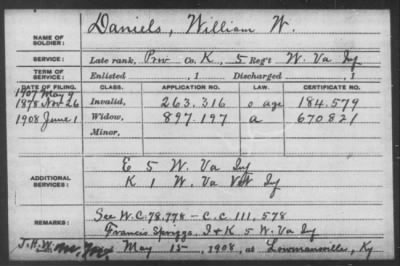 NAME OF SOLDIER: Daniels, William W.
SERVICE: Late rank, Priv Co. K, 5 Reg't W. Va Inf
TERM OF SERVICE: Enlisted , 1 Discharged , 1
DATE OF FILING. CLASS. APPLICATION NO. LAW. CERTIFICATE NO.
1907 May 9
1878 Nov 26 Invalid, 263.316 o age 184.579
1908 June 1 Widow, 897.197 a 670821
Minor,
ADDITIONAL SERVICES: E 5 W. Va Inf
K 1 W. Va Vet Inf
REMARKS: See W.C. 78,778 - C.C. 111,578
Francis Spriggs, I & K 5 W. Va Inf
J.H.W. May 15, 1908, at Lowmansville, Ky